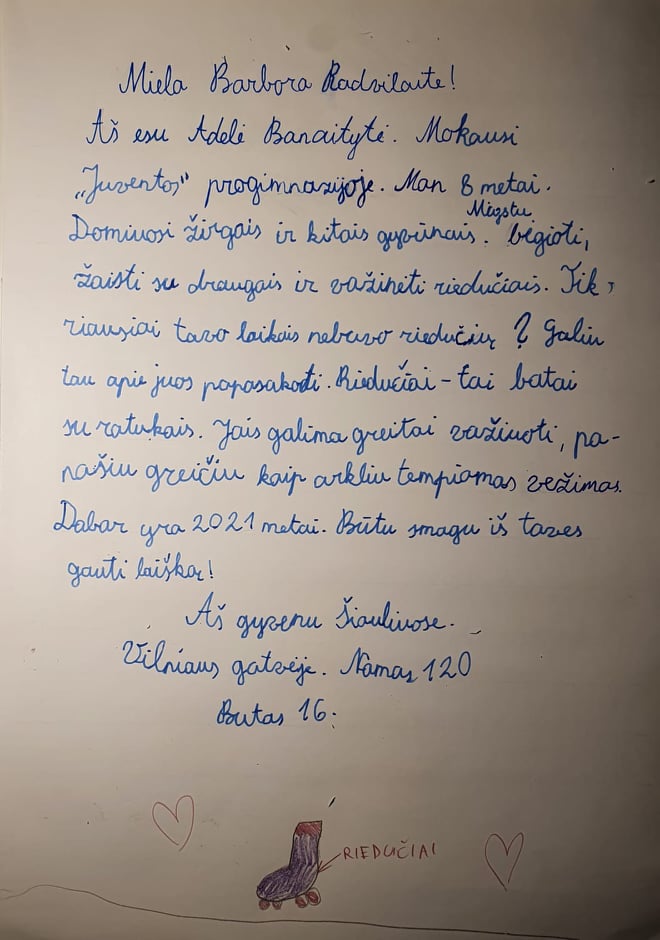 Miela Barbora Radvilaite!
Aš esu Adelė Banaitytė. Mokausi
„Juventos" progimnazijoje. Man 8 metai.
Domiuosi žirgais ir kitais gyvūnais. Mėgstu bėgioti,
žaisti su draugais ir važinėti riedučiais. Tik-
riausiai tavo laikais nebuvo riedučių? Galiu
tau apie juos papasakoti. Riedučiai - tai batai
su ratukais. Jais galima greitai važiuoti, pa-
našiu greičiu kaip arkliu tempiamas vežimas.
Dabar yra 2021 metai. Būtu smagu iš tavęs
gauti laišką!
Aš gyvenu Šiauliuose.
Vilniaus gatvėje. Namas 120
Butas 16.
RIEDUČIAI